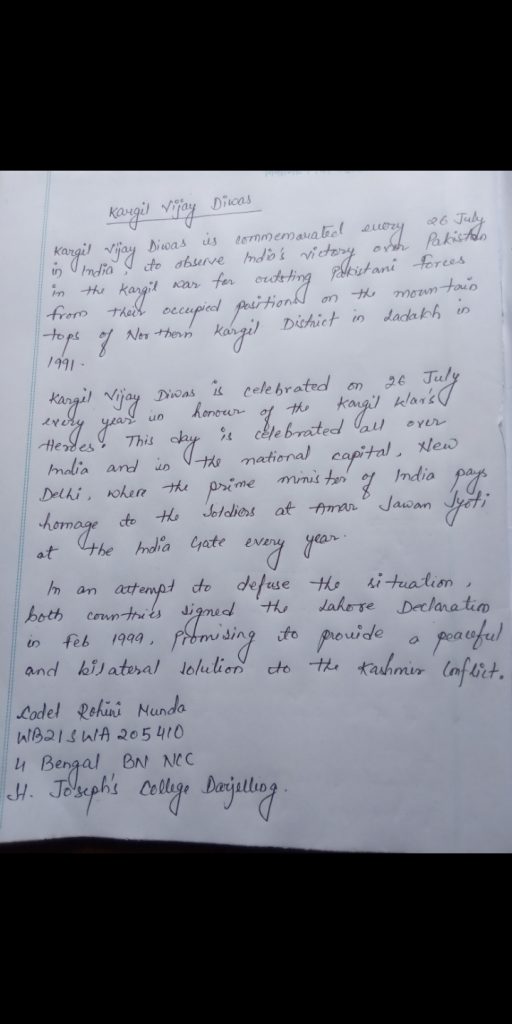 Kargil Vijay Diwas
Kargil Vijay Diwas is commemorated every 26 July
in India, to observe India's victory over Pakistan
in the Kargil war for outsting Pakistani Forces
from their occupied positions on the mountain
tops of Northern Kargil District in Ladakh in
1991.
Kargil Vijay Diwas is celebrated on 26 July
every year in honour of the Kargil War's
Heroes. This day is celebrated all over
India and in the national capital, New
Delhi, where the prime minister of India pays
homage to the Soldiers at Amar Jawan Jyoti
at the India Gate every year.
In an attempt to defuse the situation,
both countries signed the Lahore Declaration
in Feb 1999, Promising to provide a peaceful
and bilateral solution to the Kashmir Conflict.
Cadet Rohini Munda
WB21SWA205410
4 Bengal BN NCC
St. Joseph's College Darjelling.